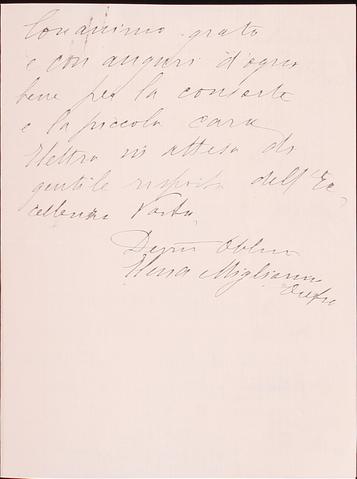 Con animo grato
e con auguri d'ogni
bene per la consorte
e la piccola cara
Elettra in attesa di
gentile risposta dell'Ec
cellenza Vostra,
Dev.ma Obbl.ma
Elena Migliorini